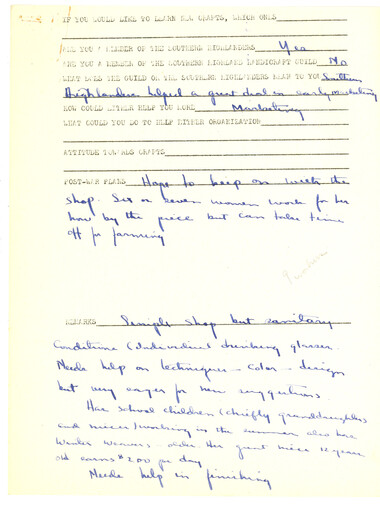 IF YOU WOULD LIKE TO LEARN NEW CRAFTS, WHICH ONES
ARE YOU A MEMBER OF THE SOUTHERN HIGHLANDERS Yes
ARE YOU A MEMBER OF THE SOUTHERN HIGHLAND HANDICRAFT GUILD No
WHAT DOES THE GUILD OR THE SOUTHERN HIGHLANDERS MEAN TO YOU Southern
Highlanders helped a great deal in early marketing
HOW COULD EITHER HELP YOU MORE Marketing
WHAT COULD YOU DO TO HELP EITHER ORGANIZATION
ATTITUDE TOWARDS CRAFTS
POST-WAR PLANS Hope to keep on with the
shop. Six or seven women work for her
now by the piece but can take time
off for farming
REMARKS Simple shop but sanitary
conditions (Individual drinking glasses.
Needs help on techniques - color - design
but very eager for new suggestions.
Has school children (chiefly granddaughters
and nieces) working in the summer also has
Winter Weavers - older. Her great niece 12 years
old earns $2.00 per day
Needs help in finishing